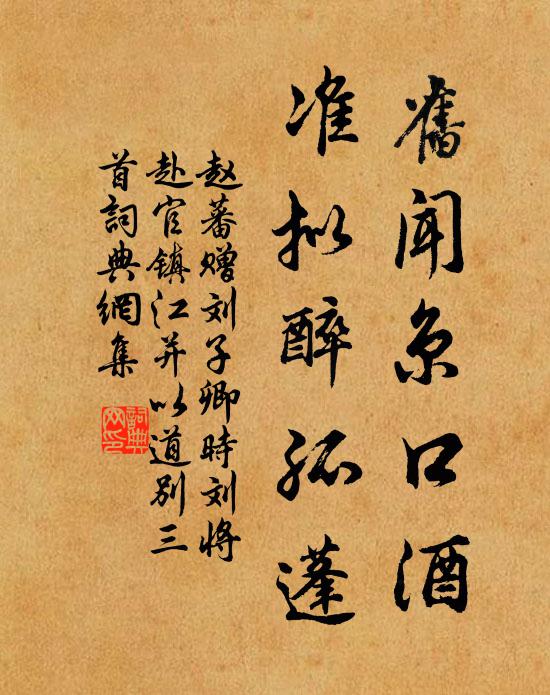 舊闻京口酒
准拟醉孤蓬
赵蕃赠刘子卿时刘将
赴官镇江并以道别三
首詞典網集
詞典
网印